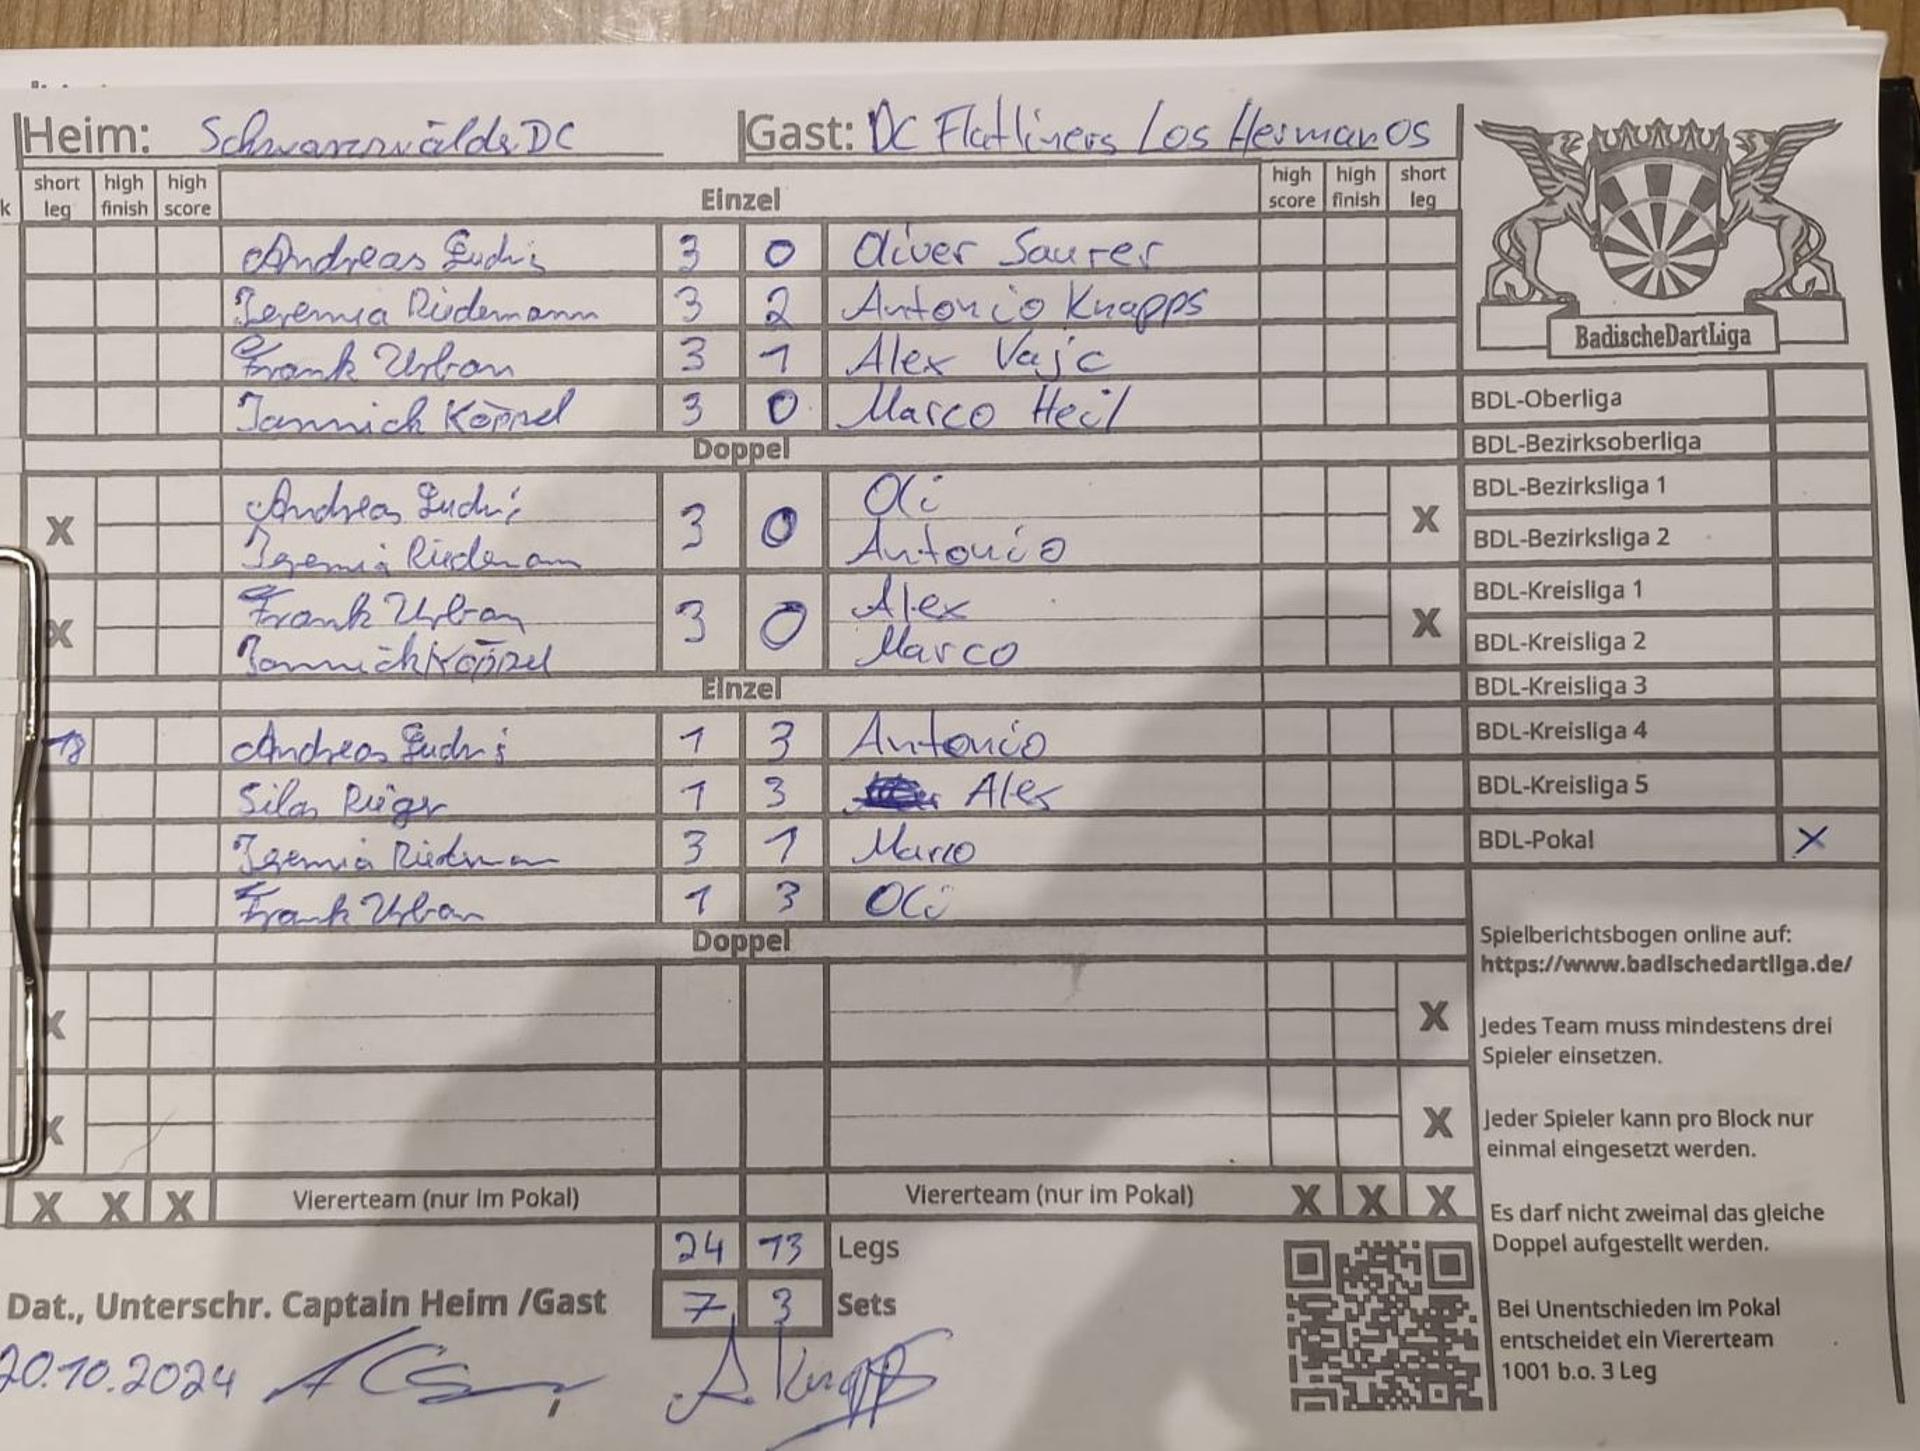 Heim: Schwarzwälder DC Gast: DC Flatliners Los Hermanos
short leg high finish high score Einzel high score high finish short leg
Andreas 3 0 Oliver Saurer
Jeremia Riedemann 3 2 Antonio Knapps
Frank Urban 3 1 Alex Vajc
Jannick Köppel 3 0 Marco Heil
Doppel
X Andreas 3 0 Oli X
Jeremia Riedemann Antonio
X Frank Urban 3 0 Alex X
Jannick Köppel Marco
Einzel
18 Andreas 1 3 Antonio
Silas Rieger 1 3 Alex
Jeremia Riedeman 3 1 Marco
Frank Urban 1 3 Oli
Doppel
X X
X X
X X X Viererteam (nur im Pokal) Viererteam (nur im Pokal) X X X
24 13 Legs
Dat., Unterschr. Captain Heim /Gast 7 3 Sets
20.10.2024 A Knapps
BadischeDartLiga
BDL-Oberliga
BDL-Bezirksoberliga
BDL-Bezirksliga 1
BDL-Bezirksliga 2
BDL-Kreisliga 1
BDL-Kreisliga 2
BDL-Kreisliga 3
BDL-Kreisliga 4
BDL-Kreisliga 5
BDL-Pokal X
Spielberichtsbogen online auf:
https://www.badischedartliga.de/
Jedes Team muss mindestens drei
Spieler einsetzen.
Jeder Spieler kann pro Block nur
einmal eingesetzt werden.
Es darf nicht zweimal das gleiche
Doppel aufgestellt werden.
Bei Unentschieden im Pokal
entscheidet ein Viererteam
1001 b.o. 3 Leg